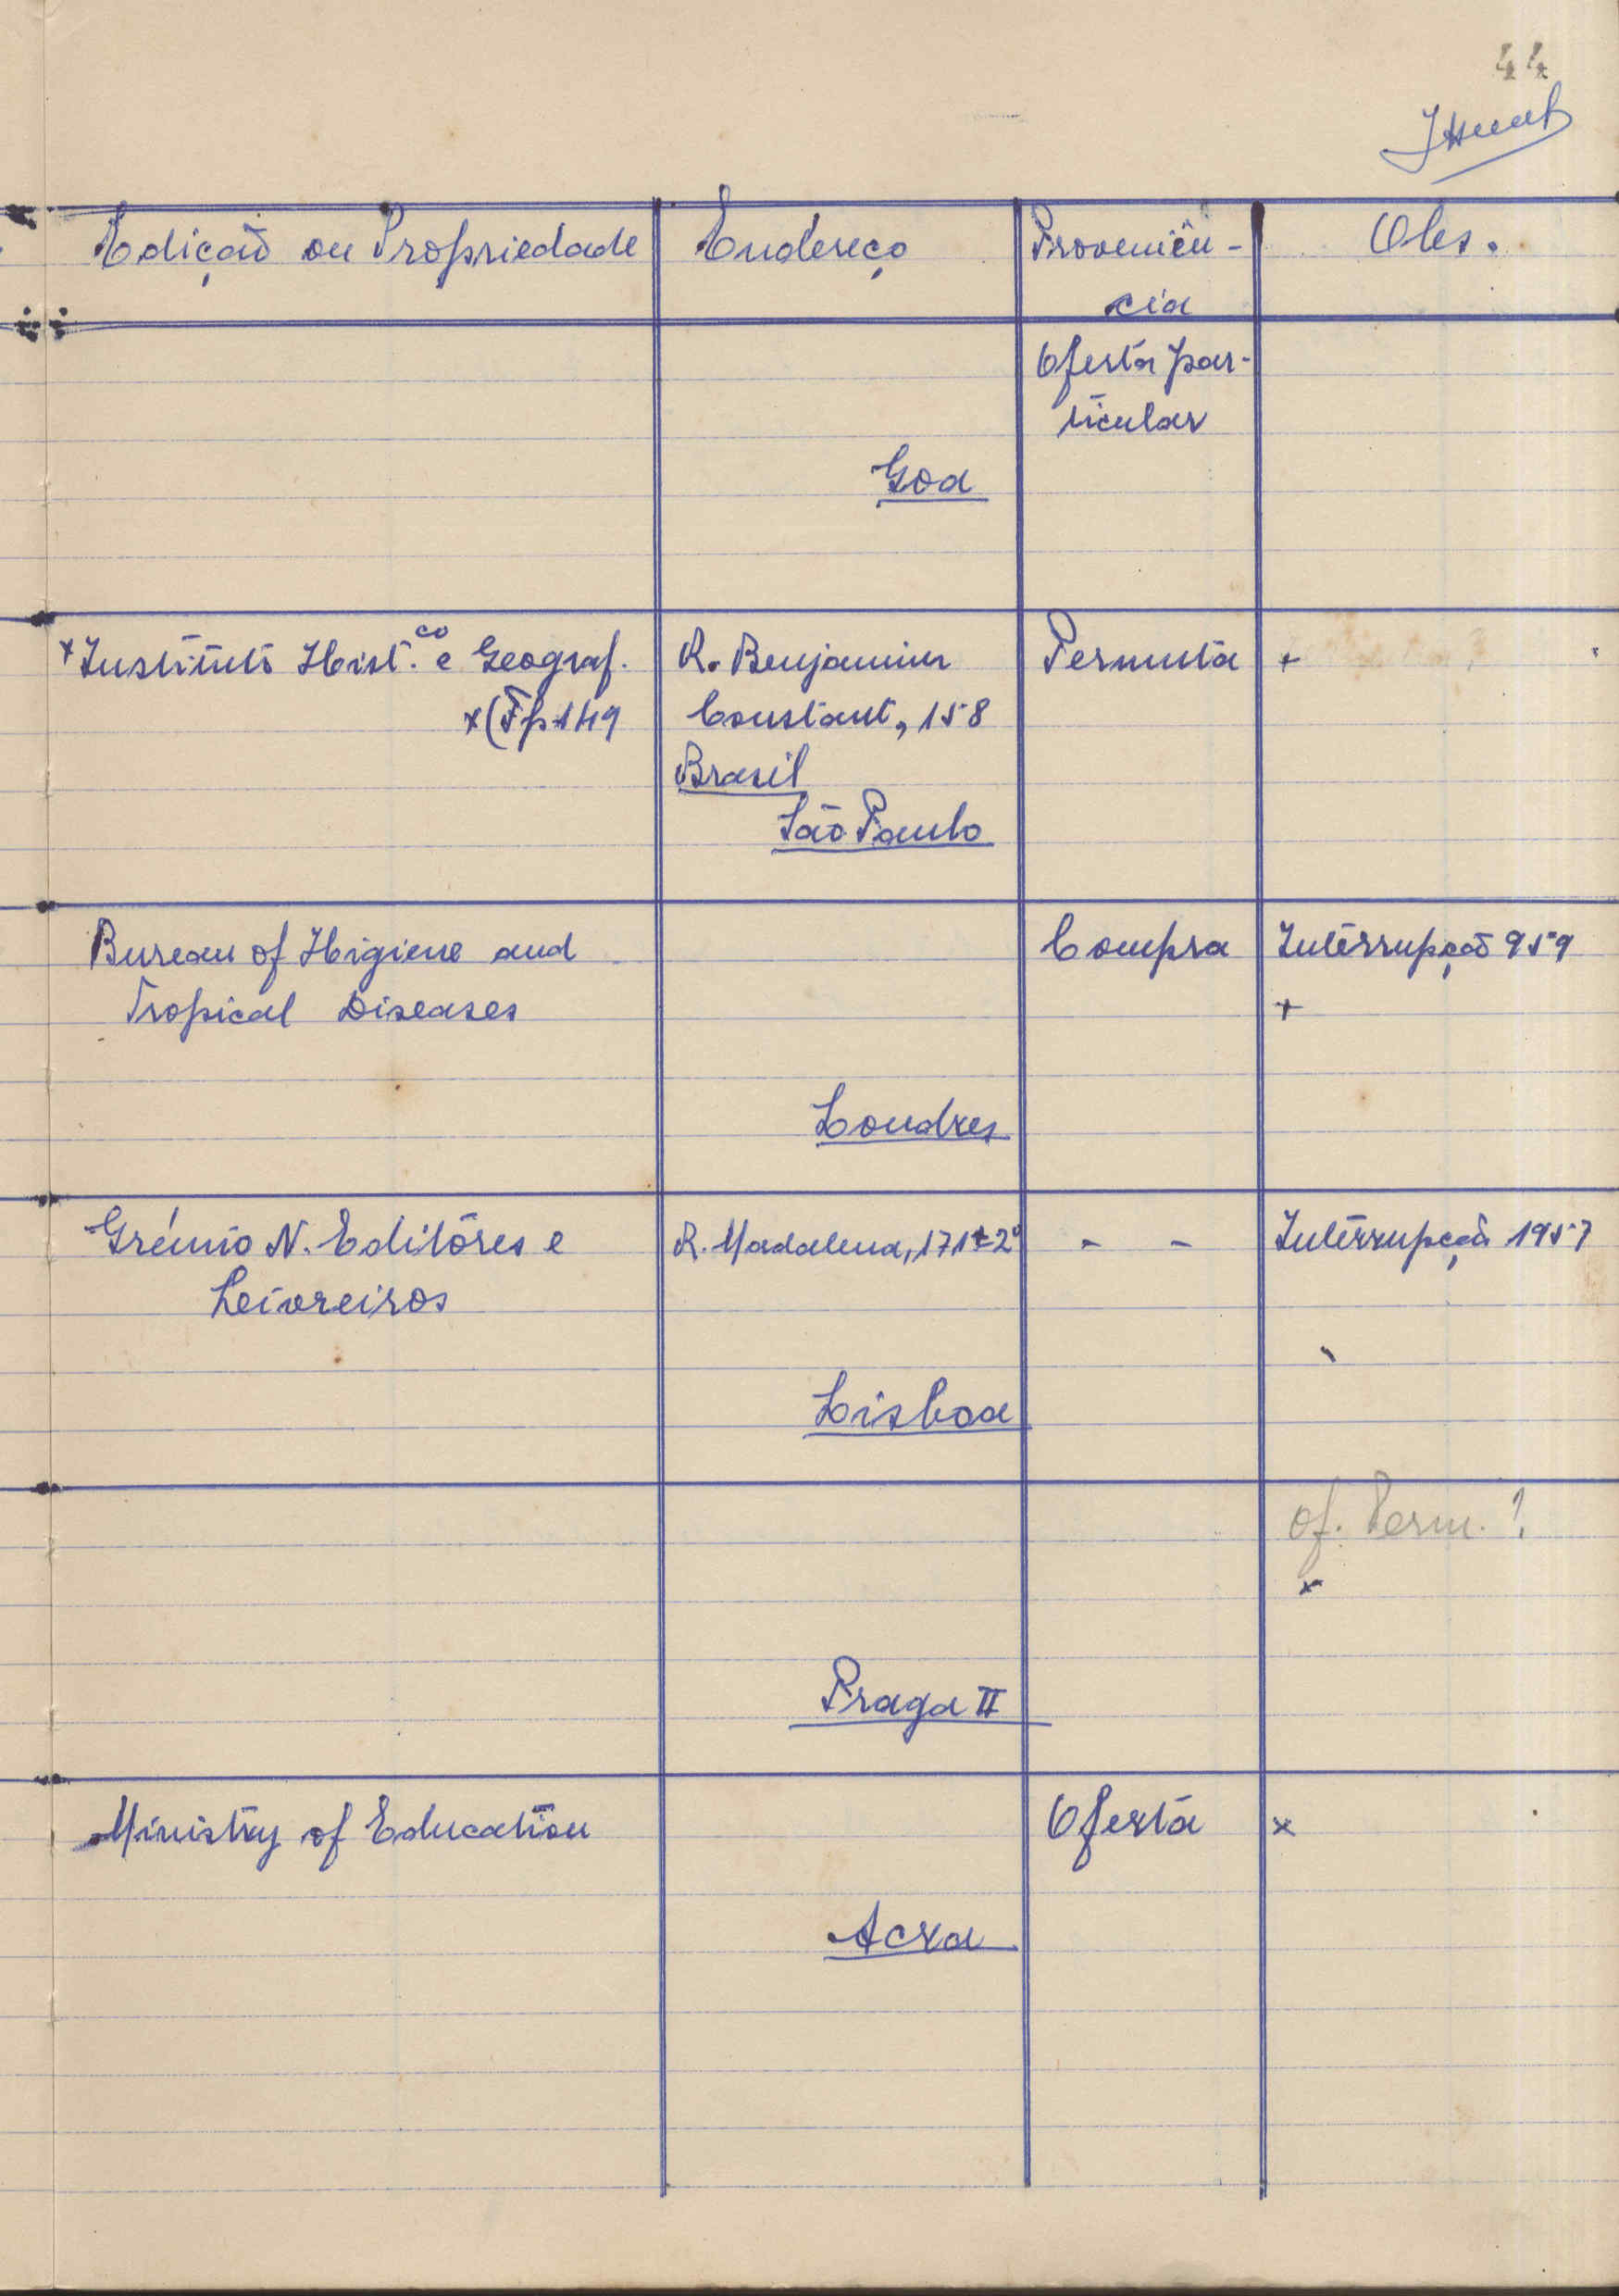 44
Edição ou Propriedade Endereço Proveniên- Obs.
cia
Oferta par-
ticular
Goa
+ Instituto Hist.co e Geograf. R. Benjamim Permuta +
x (Fp 149 Constant, 158
Brasil
São Paulo
Bureau of Higiene and Compra Interrupção 959
Tropical Diseases +
Londres
Grémio N. Editôres e R. Madalena, 171-2º - - Interrupção 1957
Leivreiros
Lisboa
of. Perm. ?
x
Praga II
Ministry of Education Oferta x
Acra